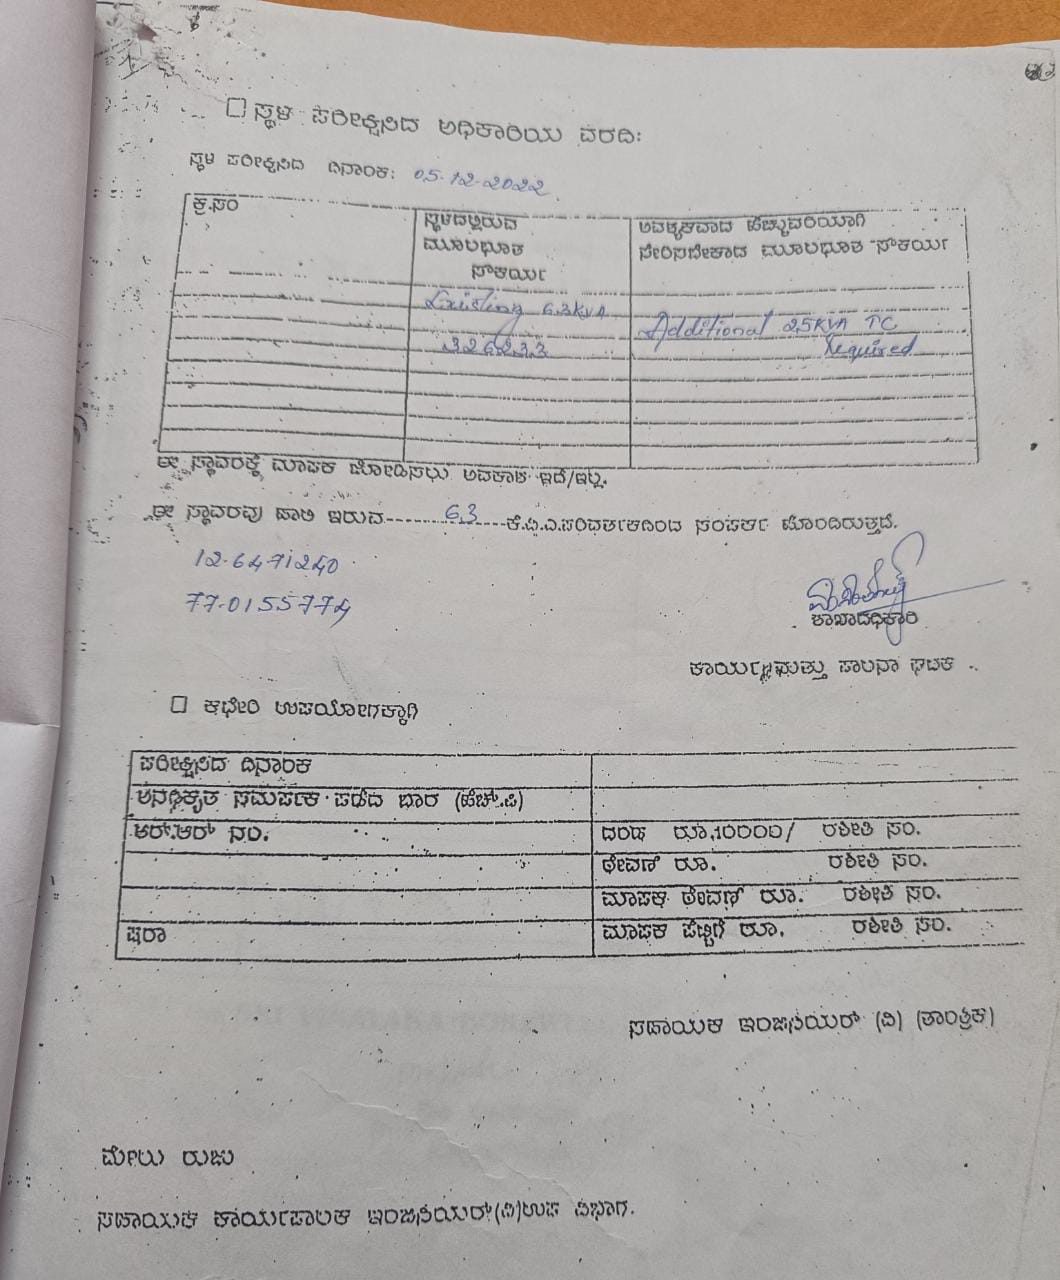 ಸ್ಥಳ ಪರೀಕ್ಷಿಸಿದ ಅಧಿಕಾರಿಯ ವರದಿ:
ಸ್ಥಳ ಪರೀಕ್ಷಿಸಿದ ದಿನಾಂಕ: 05.12.2022
ಕ್ರ.ಸಂ
ಸ್ಥಳದಲ್ಲಿರುವ ಮೂಲಭೂತ ಸೌಕರ್ಯ
ಅವಶ್ಯಕವಾದ ಹೆಚ್ಚುವರಿಯಾಗಿ
ಸೇರಿಸಬೇಕಾದ ಮೂಲಭೂತ ಸೌಕರ್ಯ
Existing 63KVA
326233
Additional 25KVA TC
required
ಈ ಸ್ಥಾವರಕ್ಕೆ ಮಾಪಕ ಜೋಡಿಸಲು ಅವಕಾಶ ಇದೆ/ಇಲ್ಲ.
ಈ ಸ್ಥಾವರವು ಹಾಲಿ ಇರುವ-------63------ಕೆ.ವಿ.ಎ.ಪರಿವರ್ತಕದಿಂದ ಸಂಪರ್ಕ ಹೊಂದಿರುತ್ತದೆ.
12.6471240
77.0155774
ಶಾಖಾಧಿಕಾರಿ
ಕಾರ್ಯ ಮತ್ತು ಪಾಲನಾ ಘಟಕ
ಕಛೇರಿ ಉಪಯೋಗಕ್ಕಾಗಿ
ಪರೀಕ್ಷಿಸಿದ ದಿನಾಂಕ
ಅನಧಿಕೃತ ಸಮಪರ್ಕ ಪಡೆದ ಭಾರ (ಹೆಚ್.ಪಿ)
ಆರ್.ಆರ್ ನಂ. ದಂಡ ರೂ.10000/ ರಶೀತಿ ಸಂ.
ಠೇವಣಿ ರೂ. ರಶೀತಿ ಸಂ.
ಮಾಪಕ ಠೇವಣಿ ರೂ. ರಶೀತಿ ಸಂ.
ಷರಾ ಮಾಪಕ ಪೆಟ್ಟಿಗೆ ರೂ. ರಶೀತಿ ಸಂ.
ಸಹಾಯಕ ಇಂಜಿನಿಯರ್ (ವಿ) (ತಾಂತ್ರಿಕ)
ಮೇಲು ರುಜು
ಸಹಾಯಕ ಕಾರ್ಯಪಾಲಕ ಇಂಜಿನಿಯರ್(ವಿ)ಉಪ ವಿಭಾಗ.